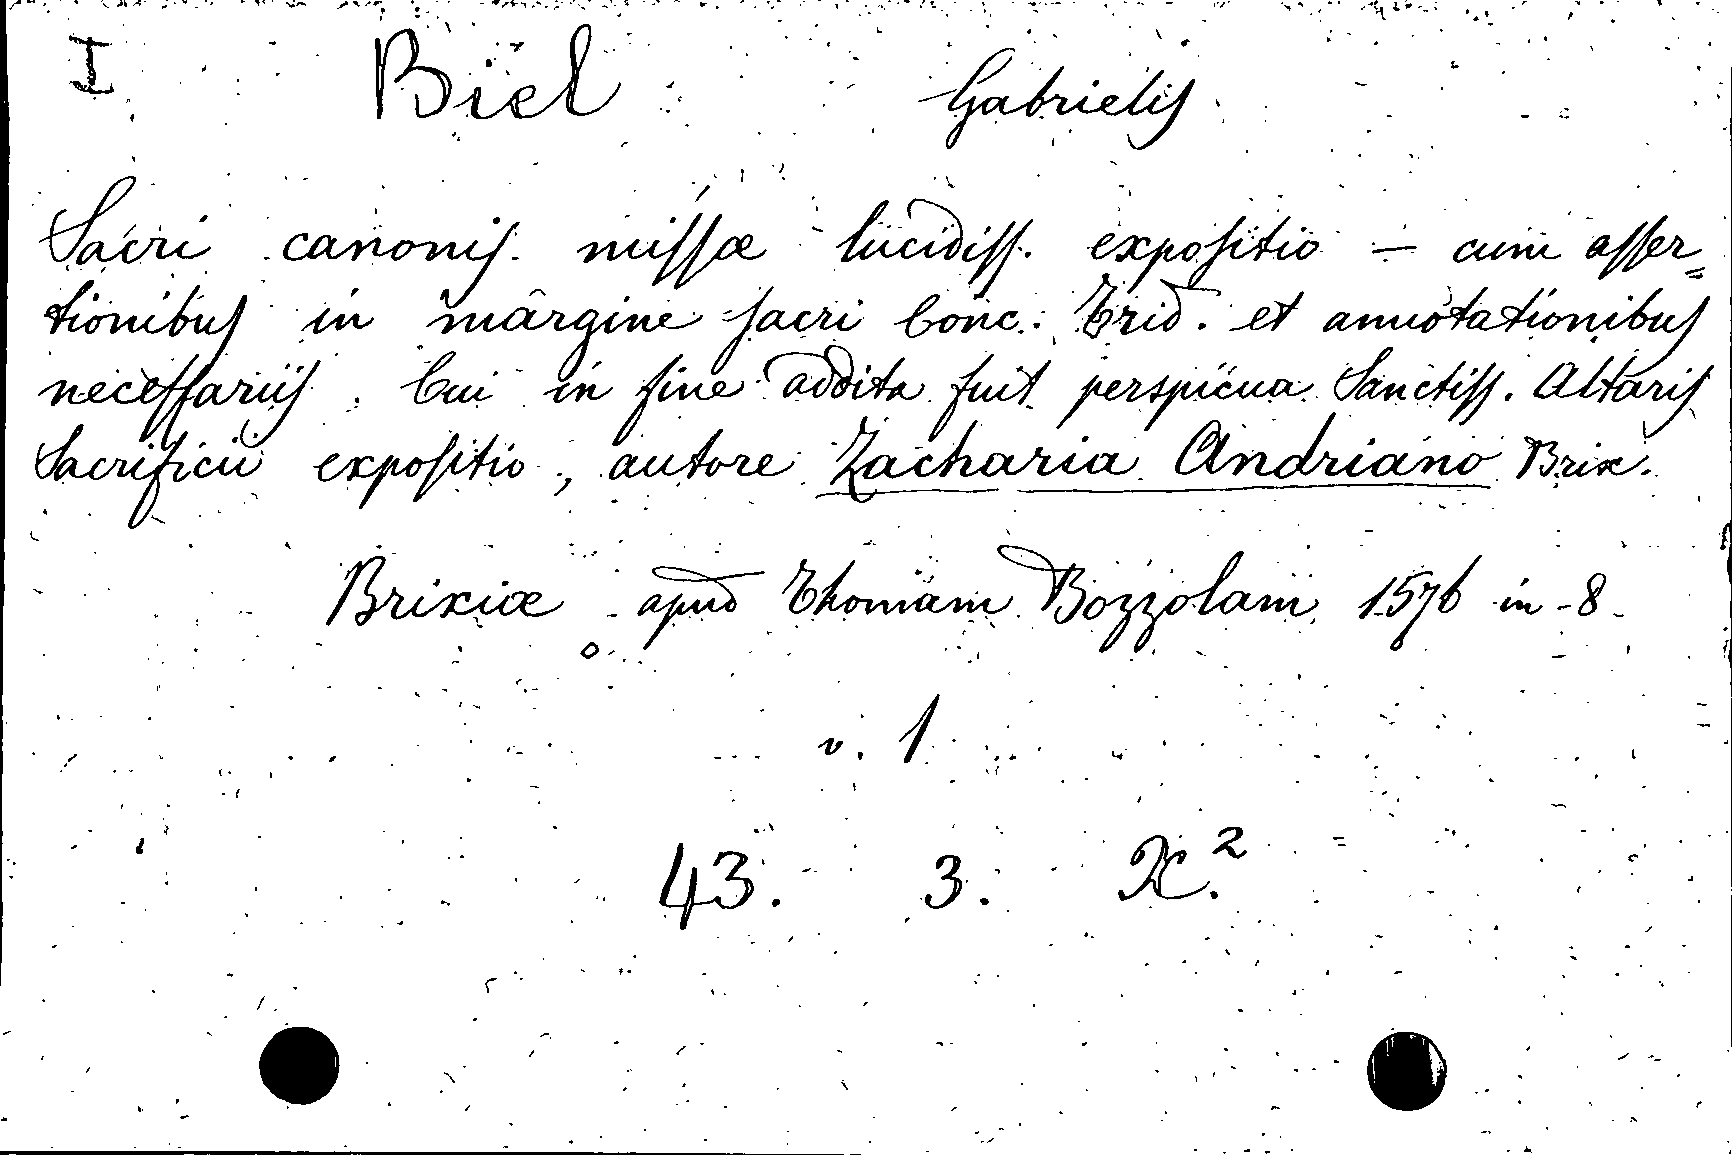 I Biel Gabrielis
Sacri canonis missæ lucidiss. expositio — cum asser=
tionibus in margine sacri Conc. Trid. et annotationibus
necessariis. Cui in fine addita fuit perspicua Sanctiss. Altaris
Sacrificii expositio, autore Zacharia Andriano Brix.
Brixiæ apud Thomam Bozzolam 1576 in-8
v. 1
43. 3. X.²